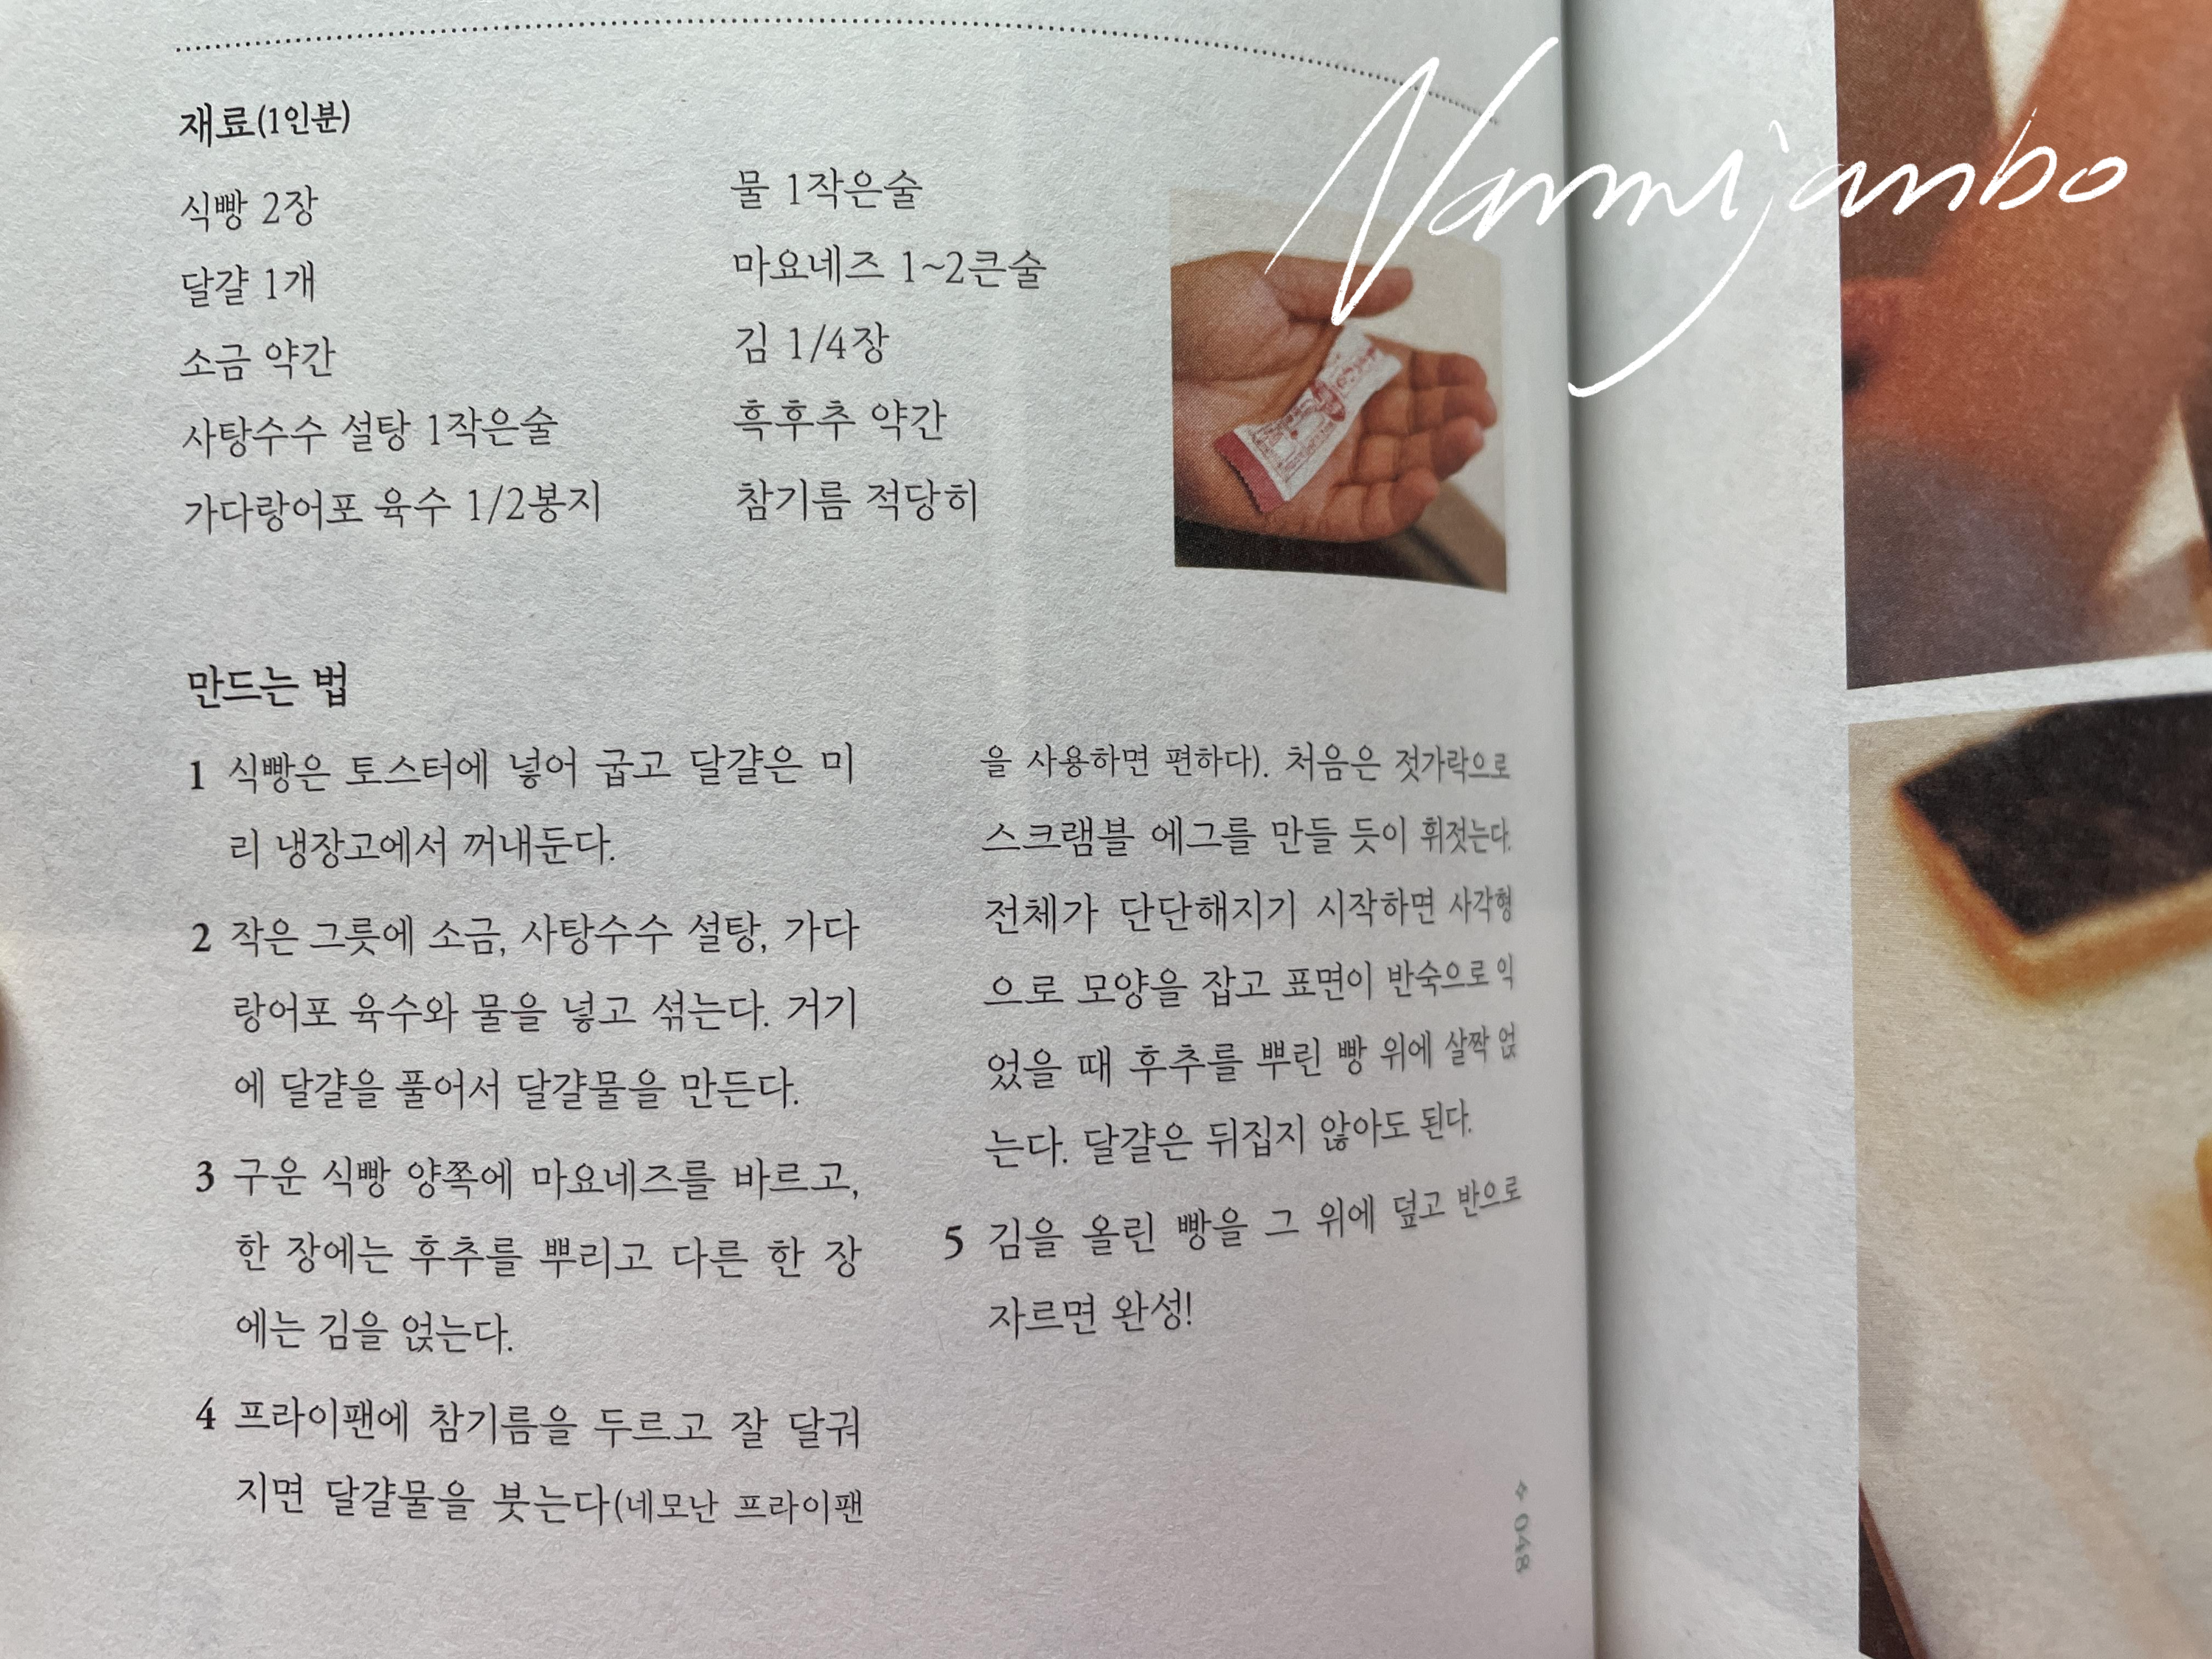 재료(1인분)
식빵 2장
달걀 1개
소금 약간
사탕수수 설탕 1작은술
가다랑어포 육수 1/2봉지
물 1작은술
마요네즈 1~2큰술
김 1/4장
흑후추 약간
참기름 적당히
만드는 법
1 식빵은 토스터에 넣어 굽고 달걀은 미
리 냉장고에서 꺼내둔다.
2 작은 그릇에 소금, 사탕수수 설탕, 가다
랑어포 육수와 물을 넣고 섞는다. 거기
에 달걀을 풀어서 달걀물을 만든다.
3 구운 식빵 양쪽에 마요네즈를 바르고,
한 장에는 후추를 뿌리고 다른 한 장
에는 김을 얹는다.
4 프라이팬에 참기름을 두르고 잘 달궈
지면 달걀물을 붓는다(네모난 프라이팬
을 사용하면 편하다). 처음은 젓가락으로
스크램블 에그를 만들 듯이 휘젓는다.
전체가 단단해지기 시작하면 사각형
으로 모양을 잡고 표면이 반숙으로 익
었을 때 후추를 뿌린 빵 위에 살짝 얹
는다. 달걀은 뒤집지 않아도 된다.
5 김을 올린 빵을 그 위에 덮고 반으로
자르면 완성!
048